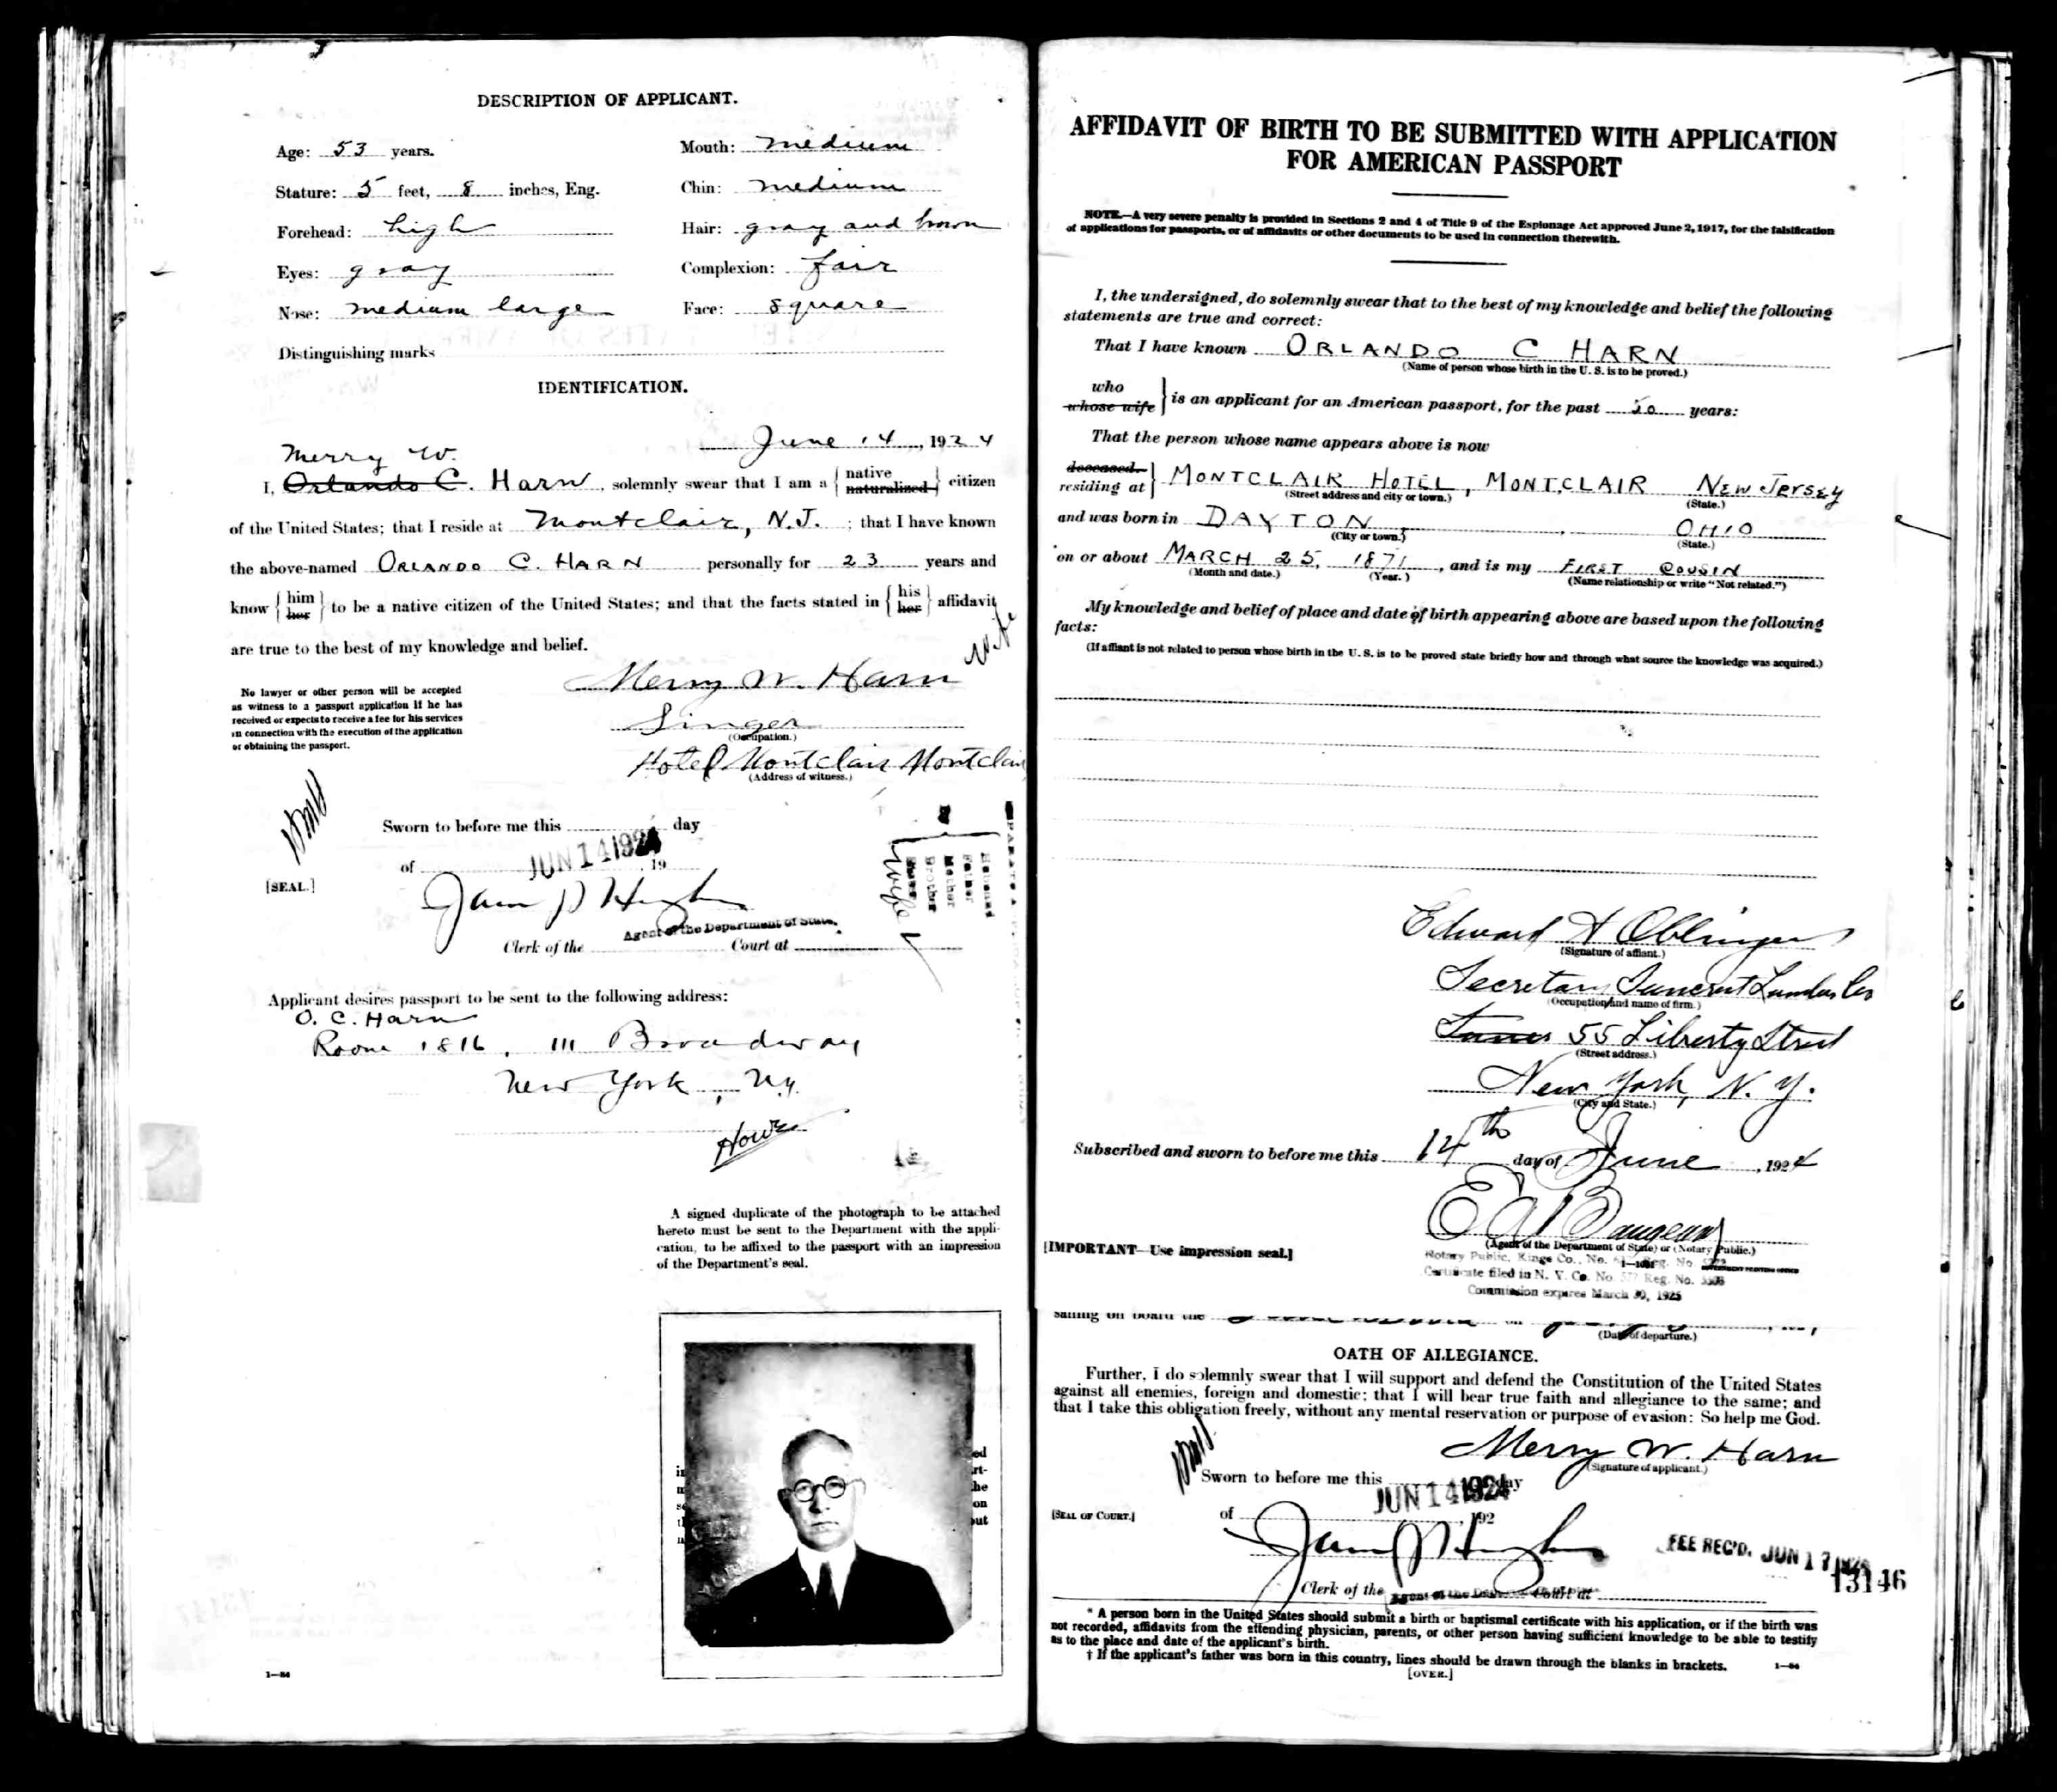 DESCRIPTION OF APPLICANT.
Age: 53 years.
Mouth: medium
Stature: 5 feet, 8 inches, Eng.
Chin: medium
Forehead: high
Hair: gray and brown
Eyes: gray
Complexion: fair
Nose: medium large
Face: square
Distinguishing marks
IDENTIFICATION.
June 14, 1924
Merry W.
I, Orlando C. Harn, solemnly swear that I am a { native naturalized } citizen
of the United States; that I reside at Montclair, N.J.; that I have known
the above-named ORLANDO C. HARN personally for 23 years and
know { him her } to be a native citizen of the United States; and that the facts stated in { his her } affidavit
are true to the best of my knowledge and belief.
wife
No lawyer or other person will be accepted
as witness to a passport application if he has
received or expects to receive a fee for his services
in connection with the execution of the application
or obtaining the passport.
Merry W. Harn
Singer
(Occupation.)
Hotel Montclair Montclair
(Address of witness.)
Sworn to before me this day
of JUN 14 1924, 19
[SEAL.]
Agent of the Department of State.
Clerk of the Court at
Husband
Father
Mother
Brother
wife
Applicant desires passport to be sent to the following address:
O. C. Harn
Room 1816, 111 Broadway
New York, N.Y.
A signed duplicate of the photograph to be attached
hereto must be sent to the Department with the appli-
cation, to be affixed to the passport with an impression
of the Department's seal.
1—84
AFFIDAVIT OF BIRTH TO BE SUBMITTED WITH APPLICATION
FOR AMERICAN PASSPORT
NOTE.—A very severe penalty is provided in Sections 2 and 4 of Title 9 of the Espionage Act approved June 2, 1917, for the falsification
of applications for passports, or of affidavits or other documents to be used in connection therewith.
I, the undersigned, do solemnly swear that to the best of my knowledge and belief the following
statements are true and correct:
That I have known ORLANDO C HARN
(Name of person whose birth in the U. S. is to be proved.)
who
whose wife } is an applicant for an American passport, for the past 50 years:
That the person whose name appears above is now
deceased.
residing at } MONTCLAIR HOTEL, MONTCLAIR NEW JERSEY
(Street address and city or town.) (State.)
and was born in DAYTON, OHIO
(City or town.) (State.)
on or about MARCH 25, 1871, and is my FIRST COUSIN
(Month and date.) (Year.) (Name relationship or write "Not related.")
My knowledge and belief of place and date of birth appearing above are based upon the following
facts:
(If affiant is not related to person whose birth in the U. S. is to be proved state briefly how and through what source the knowledge was acquired.)
Edward A Oblinger
(Signature of affiant.)
Secretary Lumber Co
(Occupation and name of firm.)
55 Liberty Street
(Street address.)
New York, N. Y.
(City and State.)
Subscribed and sworn to before me this 14th day of June, 1924
(Agent of the Department of State) or (Notary Public.)
[IMPORTANT—Use impression seal.]
Notary Public, Kings Co., No. Reg. No.
Certificate filed in N. Y. Co. No. Reg. No.
Commission expires March 30, 1925
sailing on board the
(Date of departure.)
OATH OF ALLEGIANCE.
Further, I do solemnly swear that I will support and defend the Constitution of the United States
against all enemies, foreign and domestic; that I will bear true faith and allegiance to the same; and
that I take this obligation freely, without any mental reservation or purpose of evasion: So help me God.
Merry W. Harn
(Signature of applicant.)
Sworn to before me this day
JUN 14 1924
[SEAL OF COURT.] of , 192
FEE REC'D. JUN 17 1924
13146
Clerk of the Court at
* A person born in the United States should submit a birth or baptismal certificate with his application, or if the birth was
not recorded, affidavits from the attending physician, parents, or other person having sufficient knowledge to be able to testify
as to the place and date of the applicant's birth.
† If the applicant's father was born in this country, lines should be drawn through the blanks in brackets.
1—84
[OVER.]